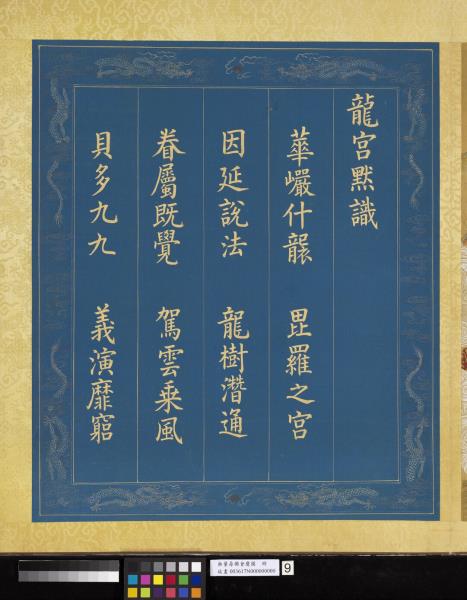 龍宮默識
華巖什襲　毘羅之宮
因延說法　龍樹潛通
眷屬既覺　駕雲乘風
貝多九九　義演靡窮
9